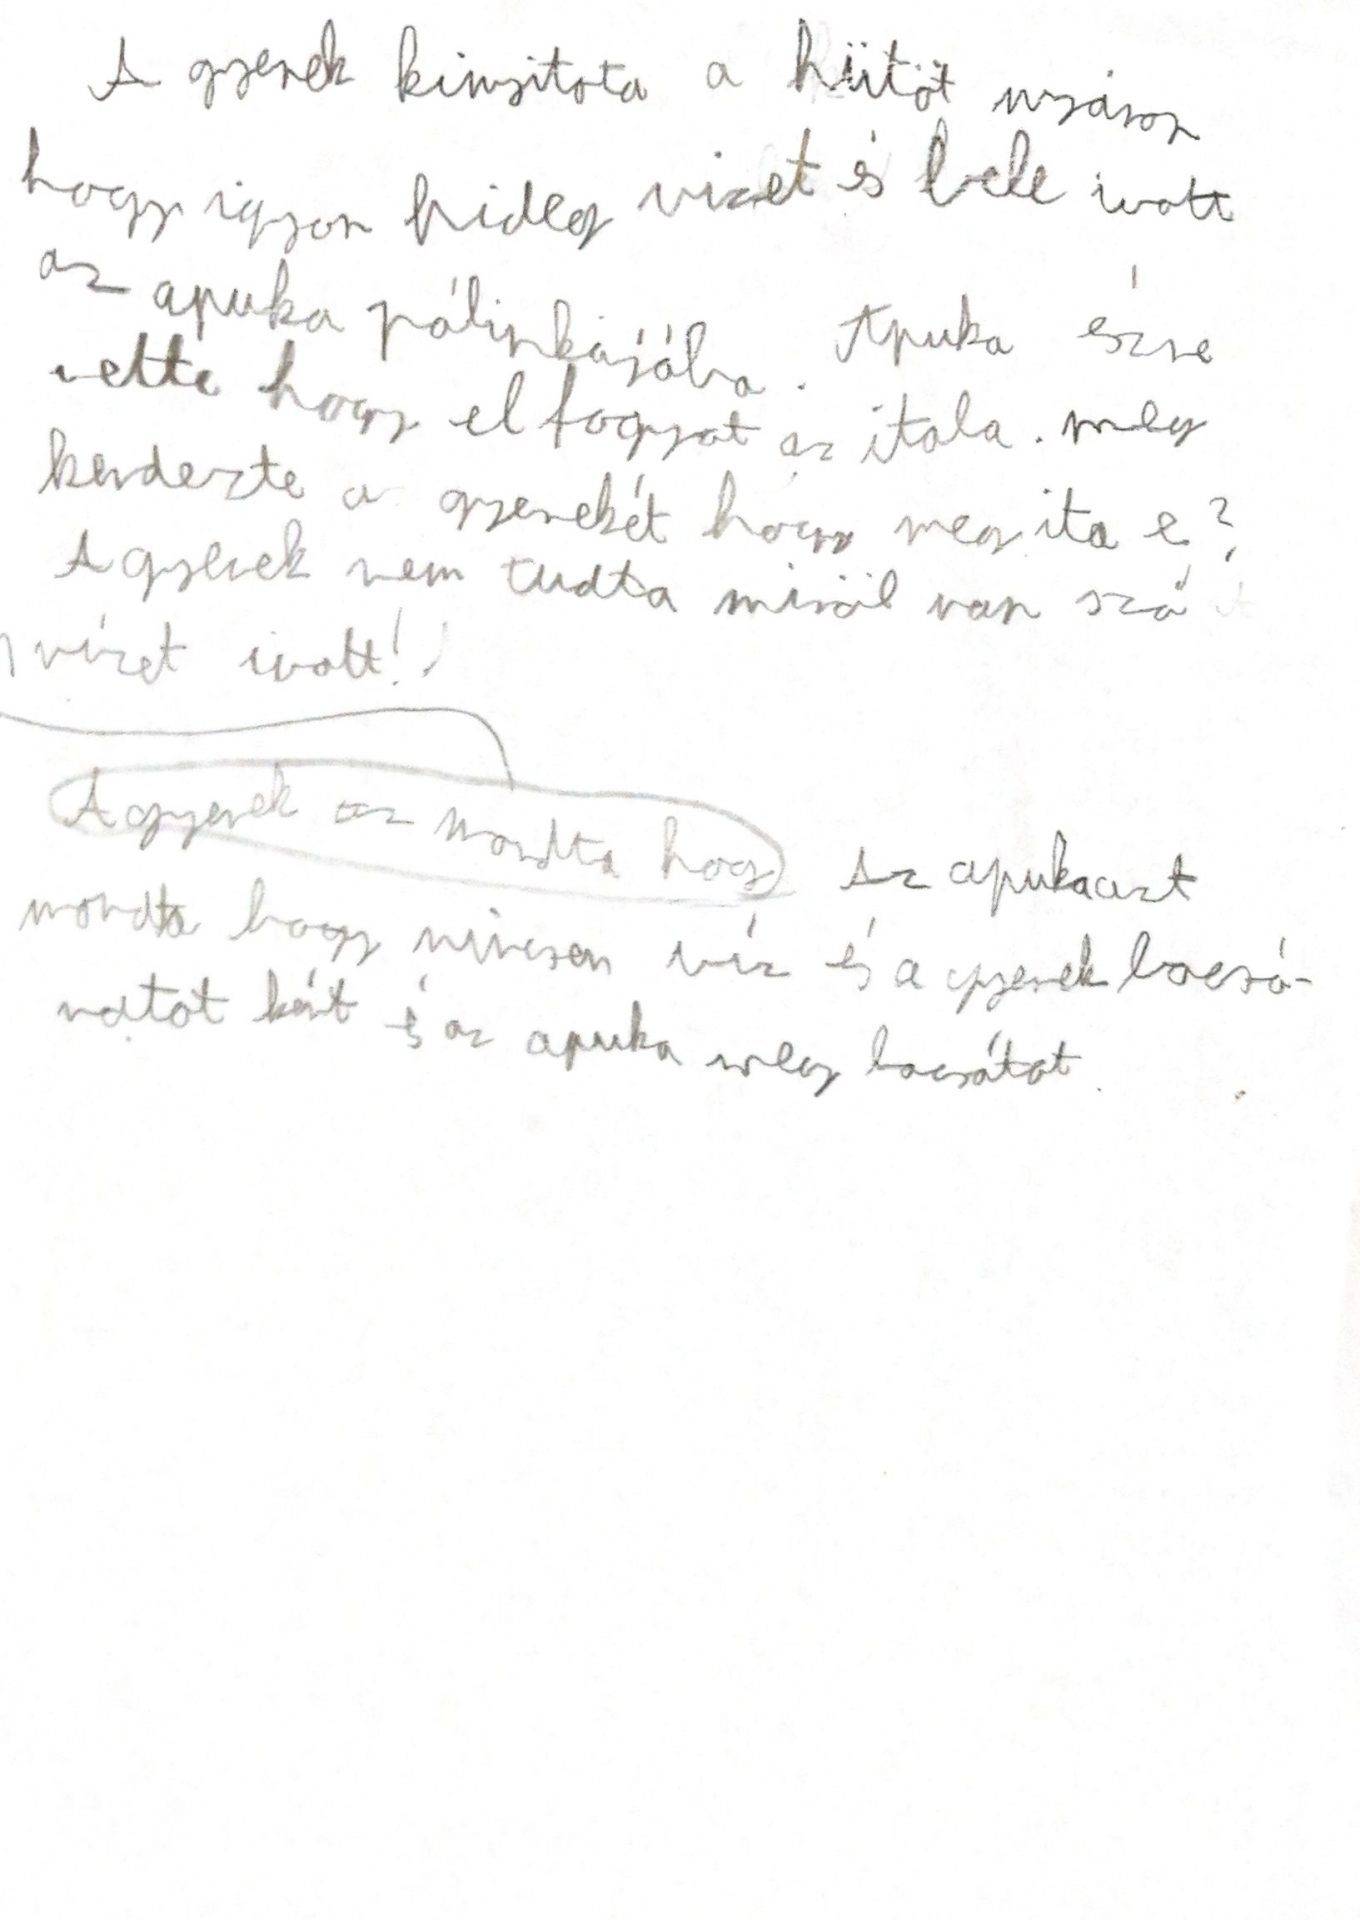 A gyerek kinyitota a hűtőt nyáron
hogy igyon hideg vizet és bele ivott
az apuka pálinkájába. Apuka észre
vette hogy el fogyot az itala. meg
kerdezte a gyerekét hogy meg ita e?
A gyerek nem tudta miről van szó
vízet ivott!
A gyerek az mondta hogy Az apuka azt
mondta hogy nincsen víz és a gyerek bocsá-
natot kért és az apuka meg bocsátot.